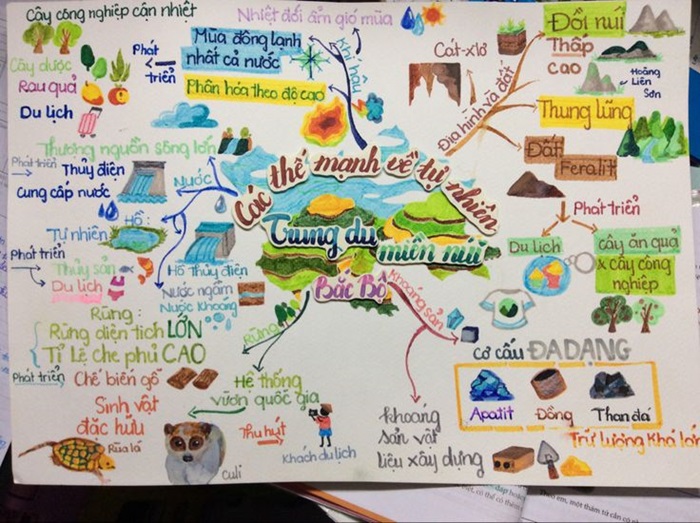 Các thế mạnh về tự nhiên
Trung du miền núi
Bắc Bộ
Khí hậu
Nhiệt đới ẩm gió mùa
Mùa đông lạnh
nhất cả nước
Phân hóa theo độ cao
Phát
triển
Cây công nghiệp cận nhiệt
Cây dược
Rau quả
Du lịch
Địa hình và đất
Đồi núi
Thấp
cao
Hoàng
Liên
Sơn
Cát-xtơ
Thung lũng
Đất
Feralit
Phát triển
Du lịch
Cây ăn quả
x cây công
nghiệp
Nước
Thượng nguồn sông lớn
Phát triển
Thủy điện
Cung cấp nước
Hồ:
Tự nhiên
Hồ thủy điện
Phát triển
Thủy sản
Du lịch
Nước ngầm
Nước khoáng
Rừng
Rừng:
Rừng diện tích LỚN
Tỉ lệ che phủ CAO
Phát triển
Chế biến gỗ
Hệ thống
vườn quốc gia
Sinh vật
đặc hữu
Rùa lá
Culi
Thu hút
Khách du lịch
Khoáng sản
Cơ cấu ĐA DẠNG
Apatit
Đồng
Than đá
Trữ lượng khá lớn
khoáng
sản vật
liệu xây dựng